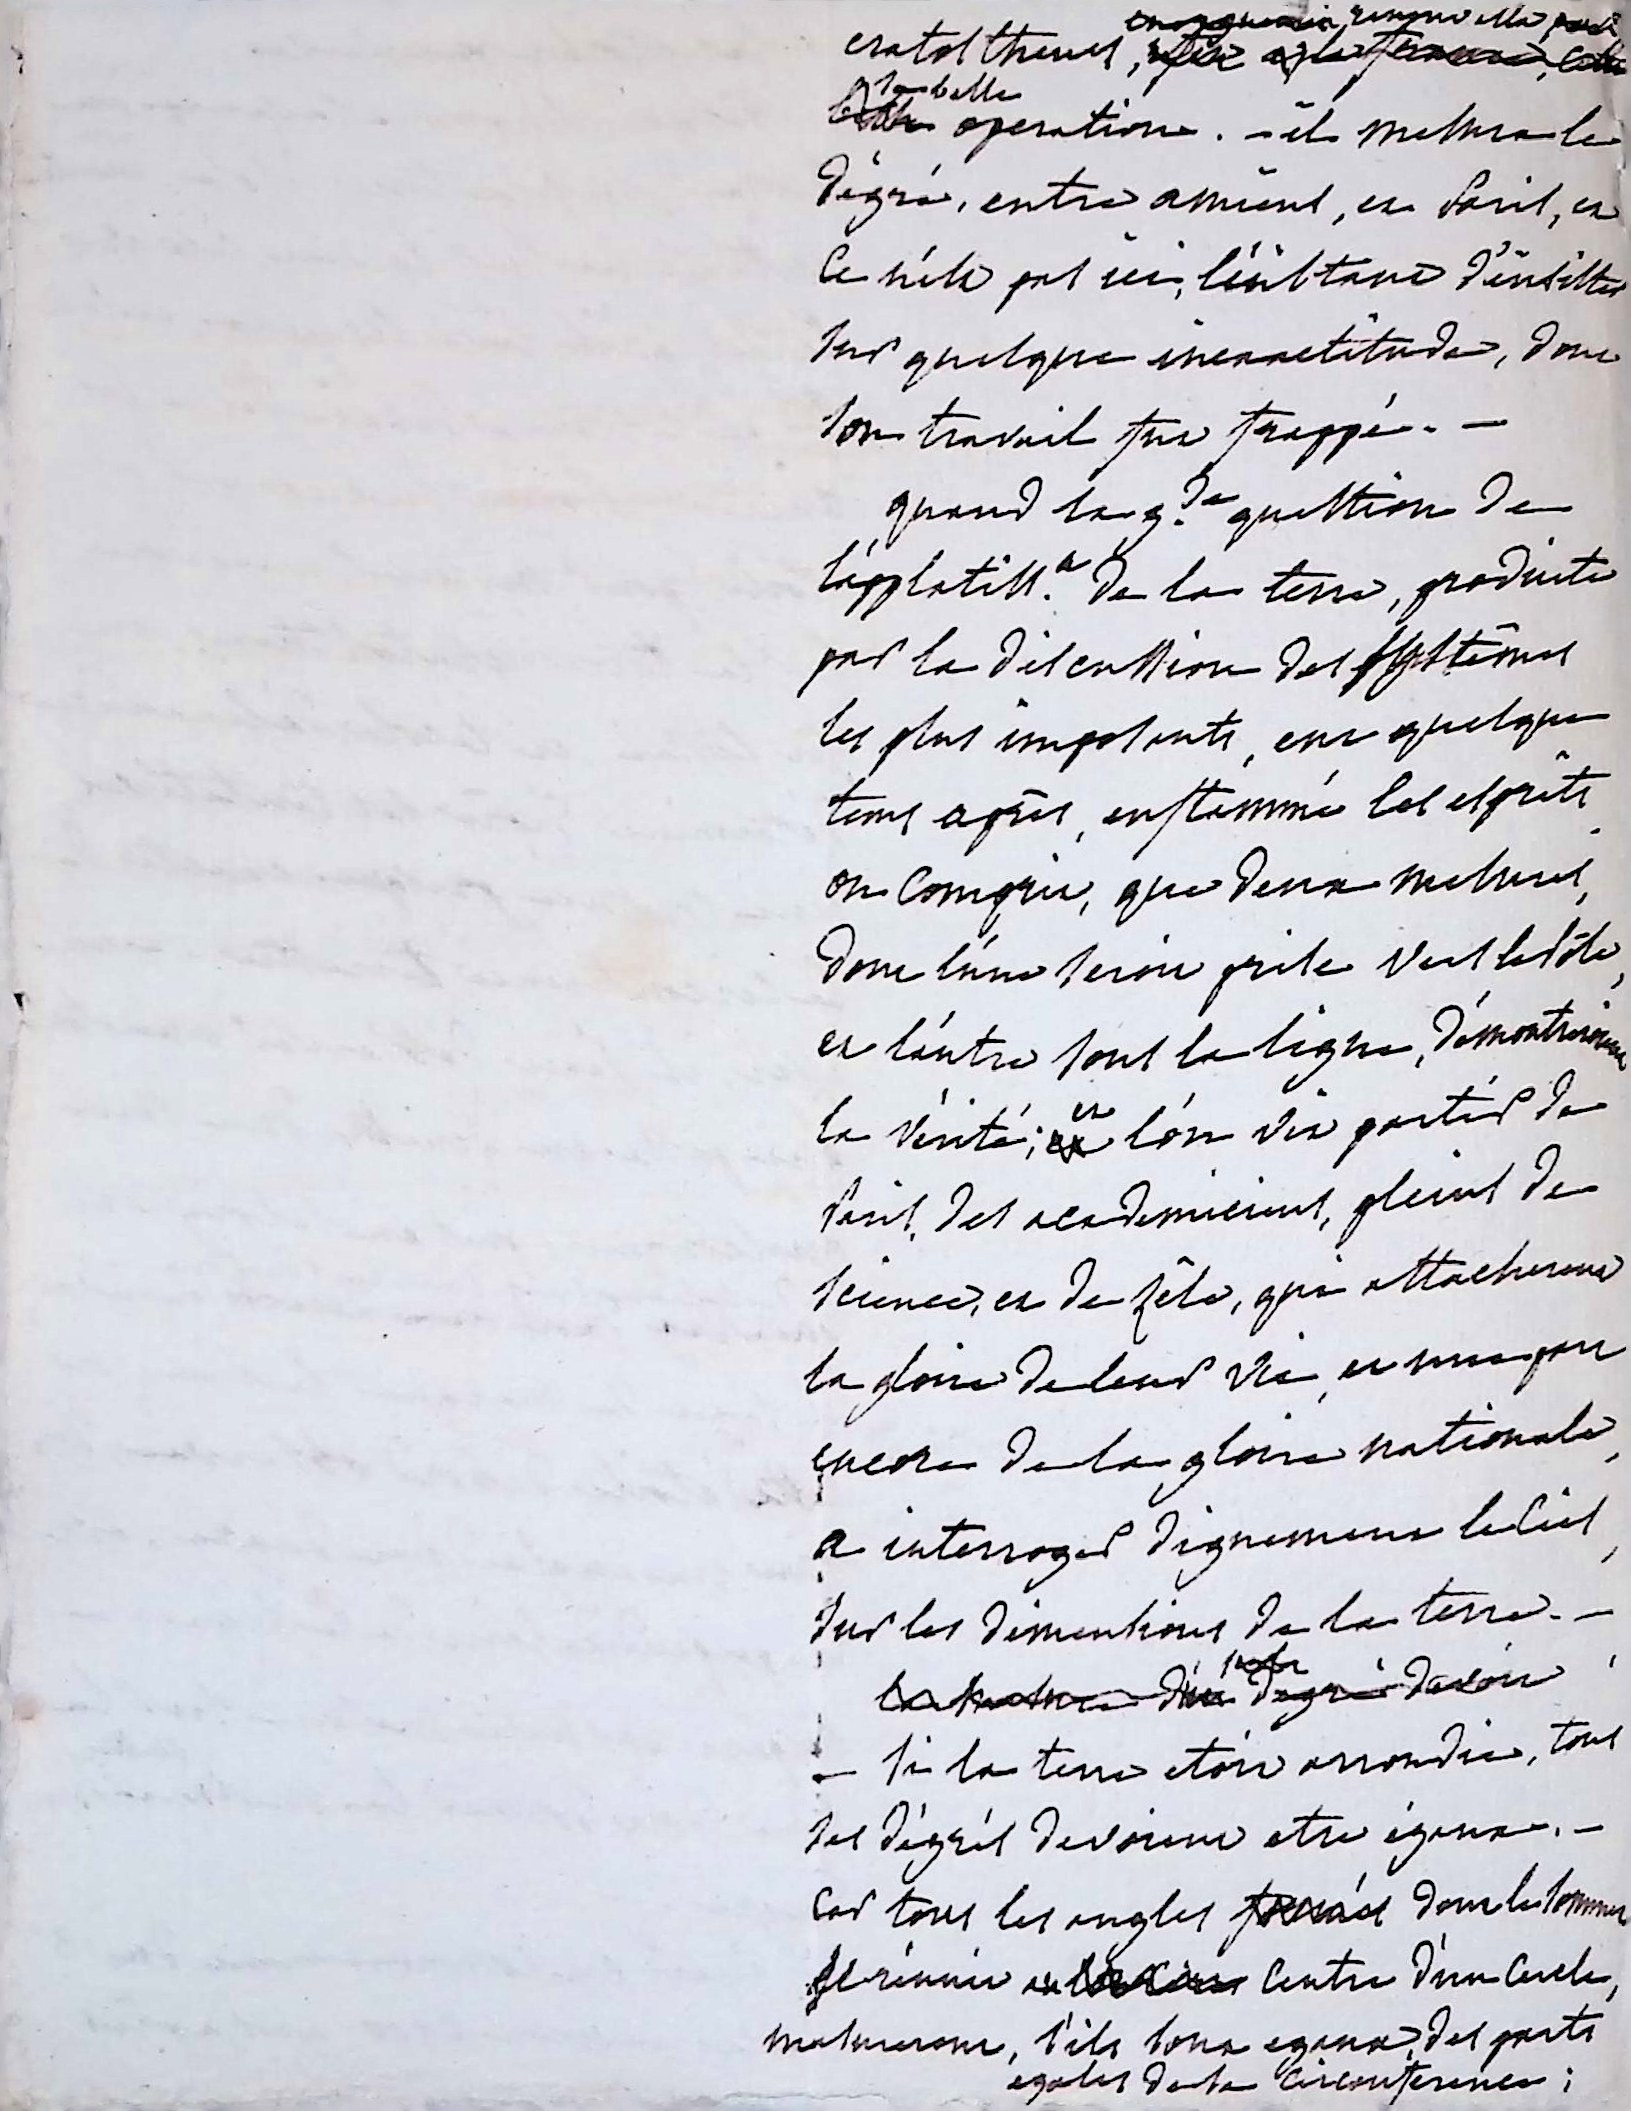 renouvella
eratosthenes,
sa belle
operation. - il mesura le
dégré, entre amiens, et Paris, et
ce n'est pas ici, l'instant d'insister
sur quelque inexactitude, dont
son travail fut frappé. -
quand la g.de question de
l'applatiss.t de la terre, produite
par la discussion des systêmes
les plus imposants, eut quelque
tems après, enflammé les esprits
on comprit, que deux mesures,
dont l'une seroit prise vers le Pôle,
et l'autre sous la ligne, démontreroient
la vérité; et l'on vit partir de
Paris, des academiciens, pleins de
science, et de zêle, qui attacherent
la gloire de leur vie, et une part
encore de la gloire nationale,
a interroger dignement le Ciel,
sur les dimensions de la terre. -
la mesure d'un degré devoit
- si la terre etoit arrondie, tous
ses dégrés devoient etre égaux. -
car tous les angles formés dont le sommet
se réunit au centre d'un cercle,
mesureront, s'ils sont egaux, des parts
egales de la circonference;